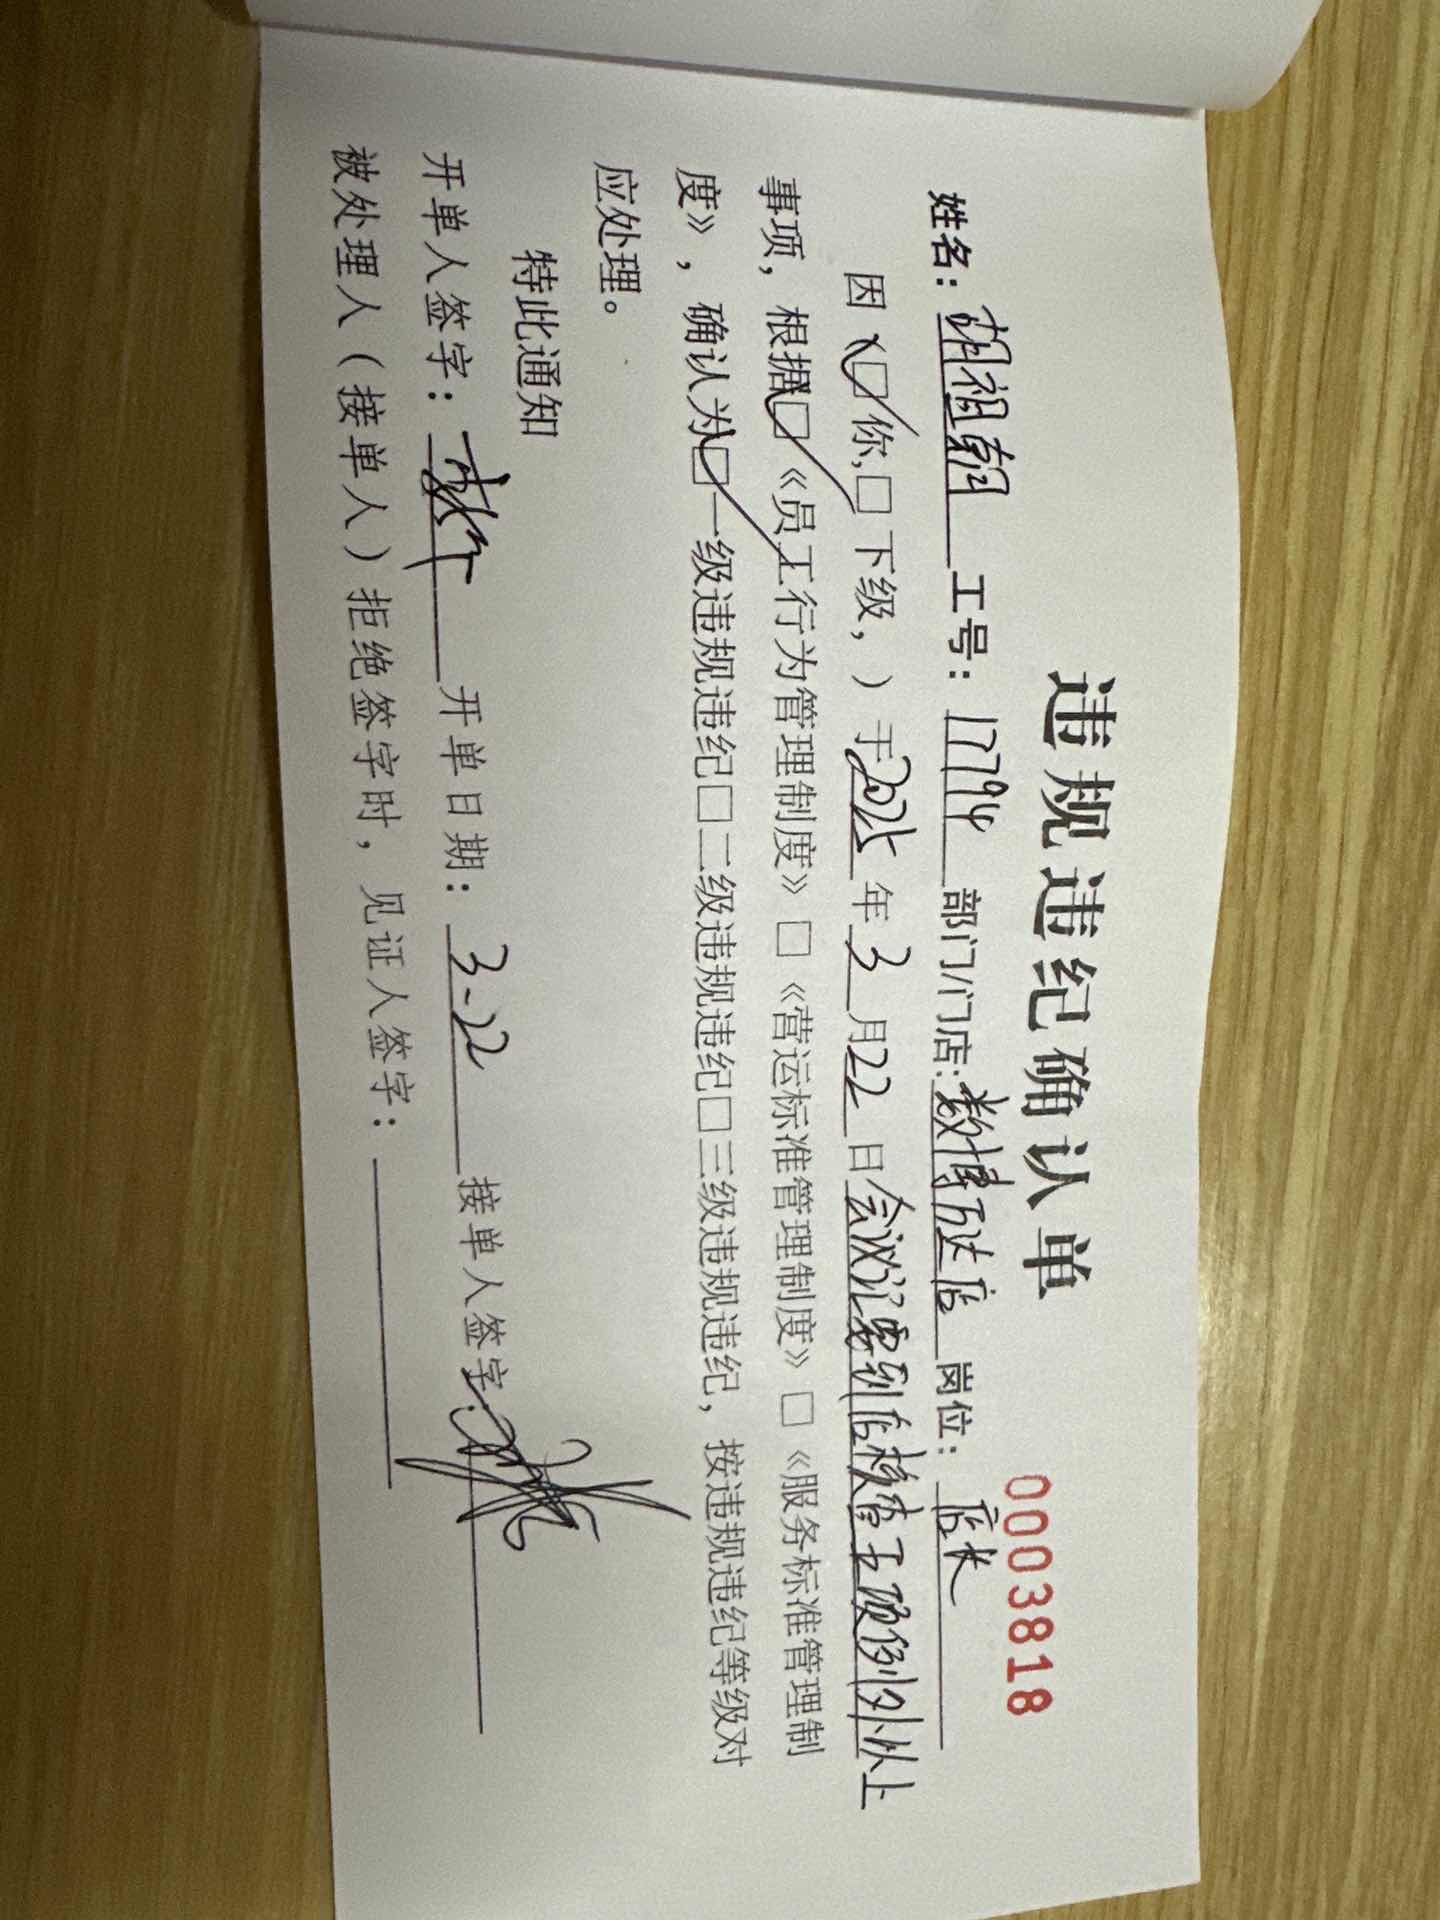 违规违纪确认单
0003818
姓名：胡祖韧 工号：17794 部门/门店：数博万达店 岗位：店长
因（☑你，☐下级，）于2025年3月22日会议汇总到店核查五项例外以上
事项，根据☑《员工行为管理制度》☐《营运标准管理制度》☐《服务标准管理制
度》，确认为☑一级违规违纪☐二级违规违纪☐三级违规违纪，按违规违纪等级对
应处理。
特此通知
开单人签字： 开单日期：3-22 接单人签字：
被处理人（接单人）拒绝签字时，见证人签字：